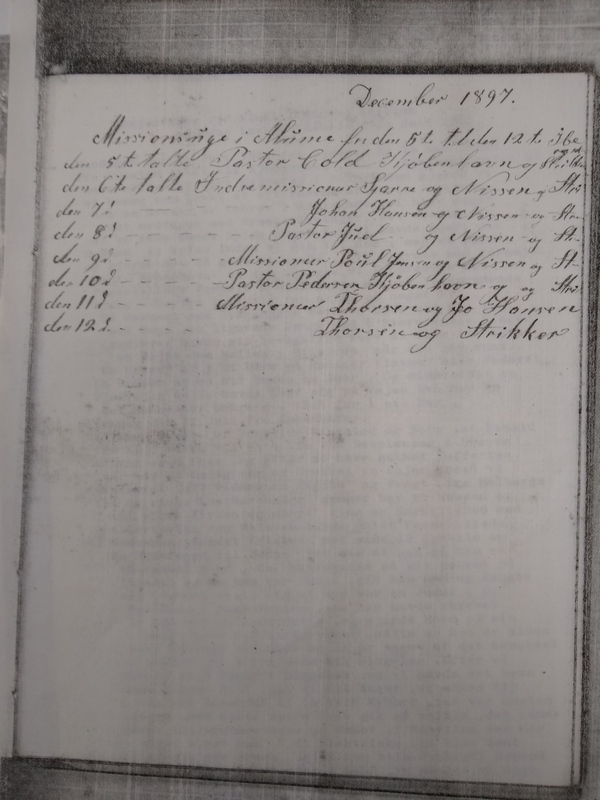 December 1897.
Missionsuge i Alume fra den 5te til den 12te
den 5te talte Pastor Cold Kjøbenhavn og Strikk
den 6te talte Indremissionær Bjarre og Nissen og Stri
den 7d - - - Johan Hansen og Nissen og St
den 8d - - - Pastor Juel og Nissen og St
den 9d - - - Missionær Poul Jensen og Nissen og St
den 10d - - - Pastor Pedersen Kjøbenhavn og og Stri
den 11d - - - Missionær Thorsen og Jo Hansen
den 12d - - - Thorsen og Strikker